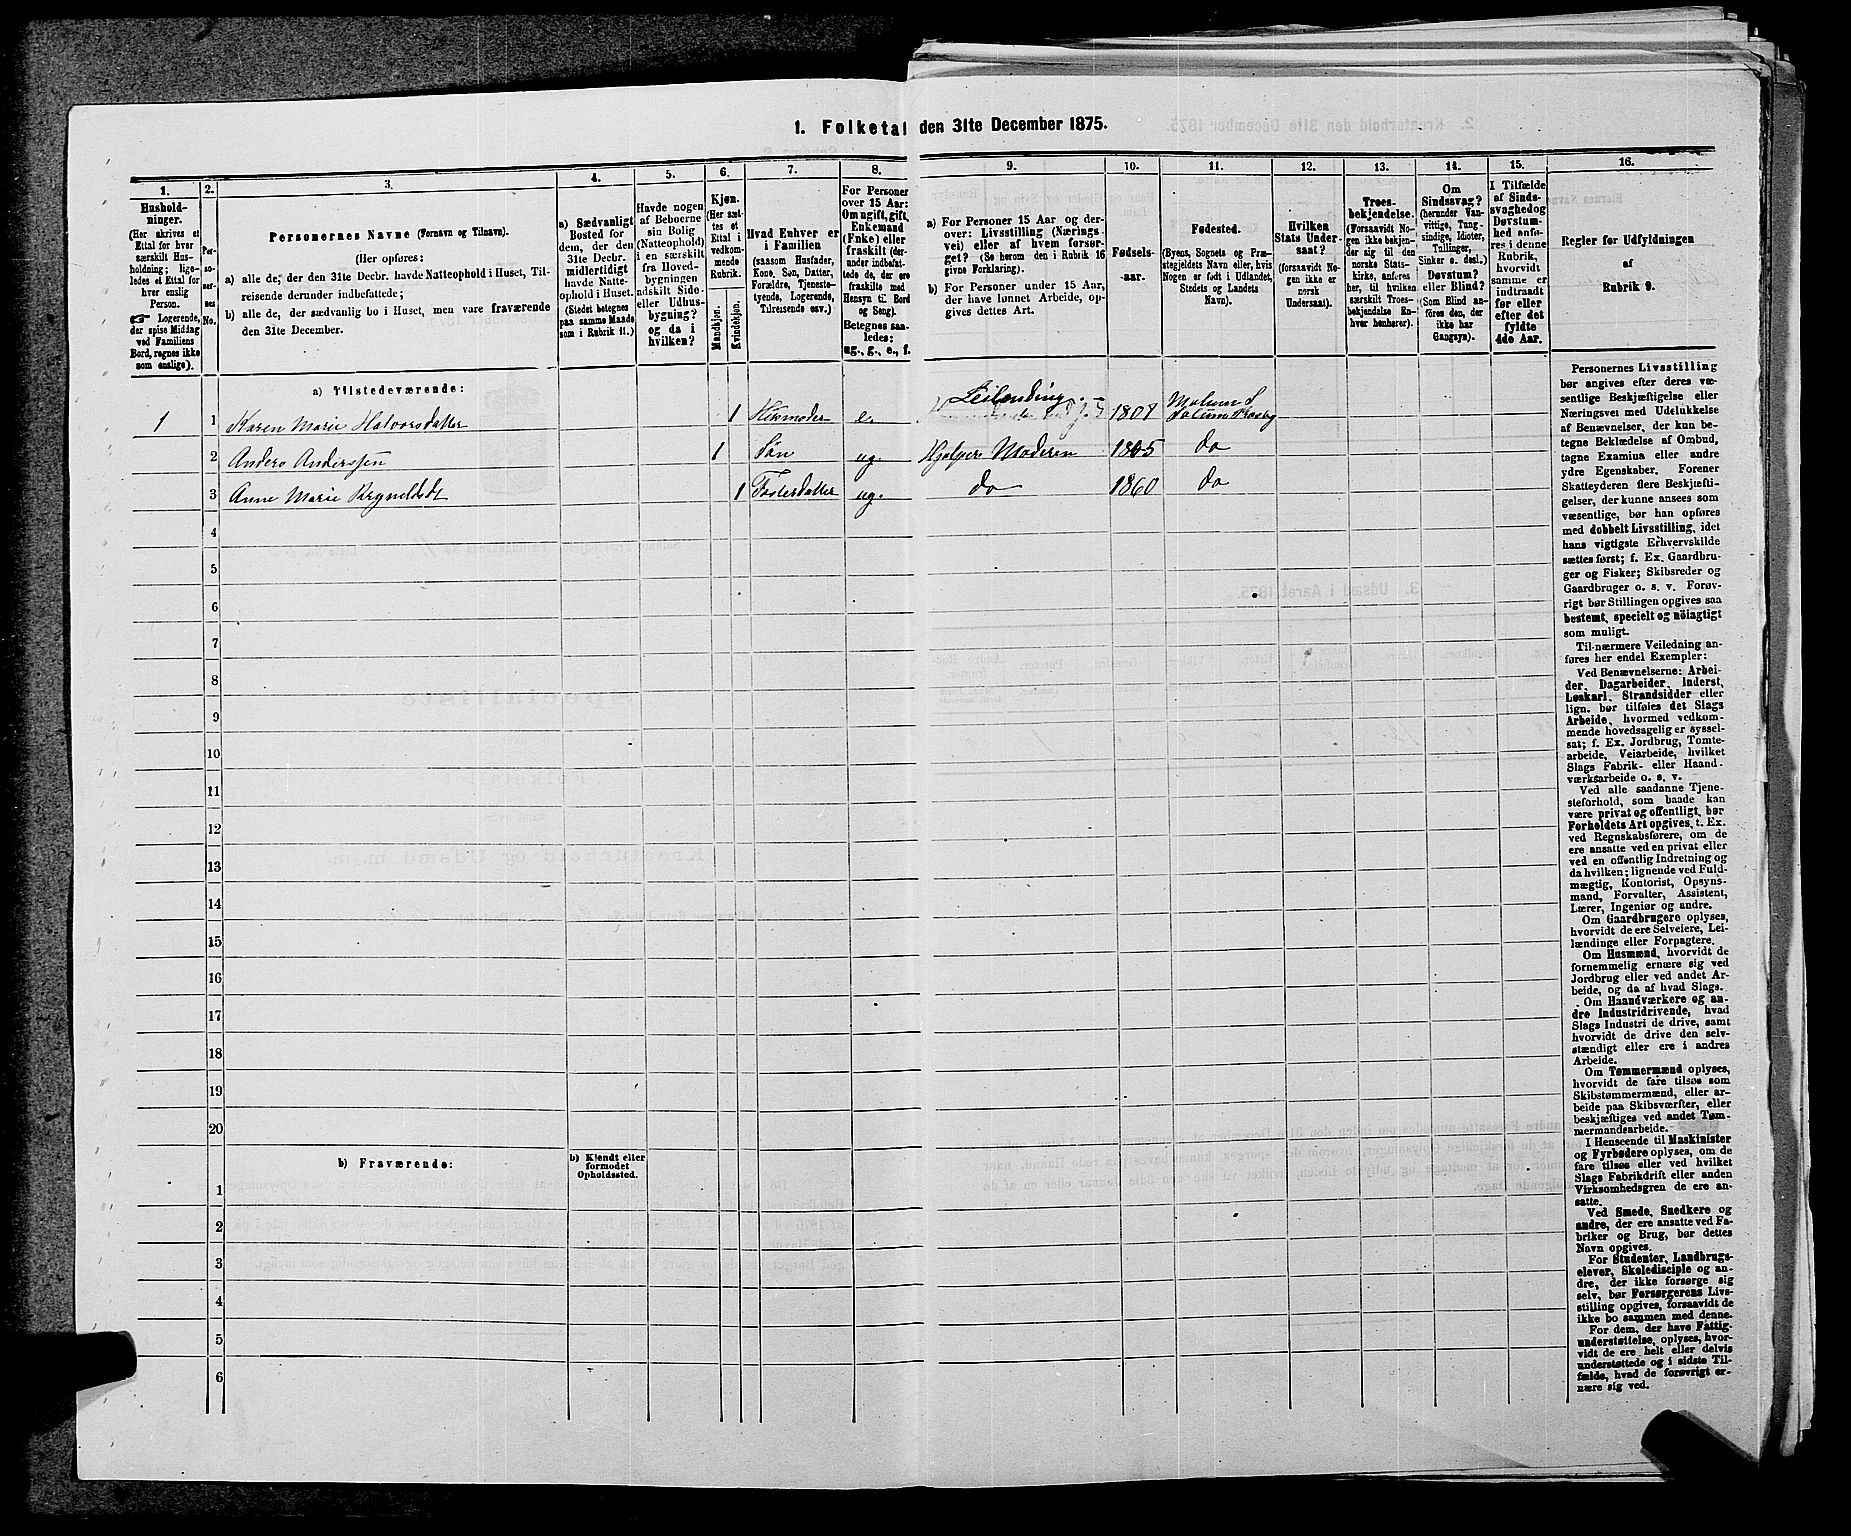 1. Folketal den 31te December 1875.
1.
2.
3.
4.
5.
6.
7.
8.
9.
10.
11.
12.
13.
14.
15.
16.
Hushold-
ninger.
(Her skrives et
Ettal for hver
særskilt Hus-
holdning; lige-
ledes et Ettal for
hver enslig
Person.
☞ Logerende,
der spise Middag
ved Familiens
Bord, regnes ikke
som enslige).
Per-
so-
ner-
nes
No.
Personernes Navne (Fornavn og Tilnavn).
(Her opføres:
a) alle de, der den 31te Decbr. havde Natteophold i Huset, Til-
reisende derunder indbefattede;
b) alle de, der sædvanlig bo i Huset, men vare fraværende
den 31te December.
a) Sædvanligt
Bosted for
dem, der den
31te Decbr.
midlertidigt
havde Natte-
ophold i Huset.
(Stedet betegnes
paa samme Maade
som i Rubrik 11.)
Havde nogen
af Beboerne
sin Bolig
(Natteophold)
i en særskilt
fra Hoved-
bygningen
adskilt Side-
eller Udhus-
bygning?
og da i
hvilken?
Kjøn.
(Her sæt-
tes et
Ettal i
vedkom-
mende
Rubrik.
Mandkjøn.
Kvindekjøn.
Hvad Enhver er
i Familien
(saasom Husfader,
Kone, Søn, Datter,
Forældre, Tjeneste-
tyende, Logerende,
Tilreisende osv.)
For Personer
over 15 Aar:
Om ugift, gift,
Enkemand
(Enke) eller
fraskilt (der-
under indbefat-
tede de, der ere
fraskilte med
Hensyn til Bord
og Seng).
Betegnes saa-
ledes:
ug., g., e., f.
a) For Personer 15 Aar og der-
over: Livsstilling (Nærings-
vei) eller af hvem forsør-
get? (Se herom den i Rubrik 16
givne Forklaring).
b) For Personer under 15 Aar,
der have lønnet Arbeide, op-
gives dettes Art.
Fødsels-
aar.
Fødested.
(Byens, Sognets og Præ-
stegjeldets Navn eller, hvis
Nogen er født i Udlandet,
Stedets og Landets
Navn).
Hvilken
Stats Under-
saat?
(forsaavidt No-
gen ikke er
norsk
Undersaat).
Troes-
bekjendelse.
(Forsaavidt No-
gen ikke bekjen-
der sig til den
norske Stats-
kirke, anføres
her, til hvilken
særskilt Troes-
bekjendelse En-
hver henhører).
Om
Sindssvag?
(herunder Van-
vittige, Tung-
sindige, Idioter,
Tullinger,
Sinker o. desl.)
Døvstum?
eller Blind?
(Som Blind an-
føres den, der
ikke har
Gangsyn).
I Tilfælde
af Sinds-
svaghed og
Døvstum-
hed anføres
i denne
Rubrik,
hvorvidt
samme er
indtraadt
før eller
efter det
fyldte
4de Aar.
Regler for Udfyldningen
af
Rubrik 9.
a) Tilstedeværende:
1 1 Karen Marie Halvorsdatter 1 Husmoder e. Leilending 1807 Solum Præstg
2 Anders Andersen 1 Søn ug. Hjelper Moderen 1845 do
3 Anne Marie 1 Fosterdatter ug. do 1860 do
4
5
6
7
8
9
10
11
12
13
14
15
16
17
18
19
20
b) Fraværende:
b) Kjendt eller
formodet
Opholdssted.
1
2
3
4
5
6
Personernes Livsstilling
bør angives efter deres væ-
sentlige Beskjæftigelse eller
Næringsvei med Udelukkelse
af Benævnelser, der kun be-
tegne Beklædelse af Ombud,
tagne Examina eller andre
ydre Egenskaber. Forener
Skatteyderen flere Beskjæfti-
gelser, der kunne ansees som
væsentlige, bør han opføres
med dobbelt Livsstilling, idet
hans vigtigste Erhvervskilde
sættes først; f. Ex. Gaardbru-
ger og Fisker; Skibsreder og
Gaardbruger o. s. v. Forøv-
rigt bør Stillingen opgives saa
bestemt, specielt og nøiagtigt
som muligt.
Til nærmere Veiledning an-
føres her endel Exempler:
Ved Benævnelserne: Arbei-
der, Dagarbeider, Inderst,
Løskarl, Strandsidder eller
lign. bør tilføies det Slags
Arbeide, hvormed vedkom-
mende hovedsagelig er syssel-
sat; f. Ex. Jordbrug, Tomte-
arbeide, Veiarbeide, hvilket
Slags Fabrik- eller Haand-
værksarbeide o. s. v.
Ved alle saadanne Tjene-
steforhold, som baade kan
være privat og offentligt, bør
Forholdets Art opgives, t. Ex.
ved Regnskabsførere, om de
ere ansatte ved en privat eller
ved en offentlig Indretning og
da hvilken; lignende ved Fuld-
mægtig, Kontorist, Opsyns-
mand, Forvalter, Assistent,
Lærer, Ingeniør og andre.
Om Gaardbrugere oplyses,
hvorvidt de ere Selveiere, Lei-
lændinge eller Forpagtere.
Om Husmænd, hvorvidt de
fornemmelig ernære sig ved
Jordbrug eller ved andet Ar-
beide, og da af hvad Slags.
Om Haandværkere og an-
dre Industridrivende, hvad
Slags Industri de drive, samt
hvorvidt de drive den selv-
stændigt eller ere i andres
Arbeide.
Om Tømmermænd oplyses,
hvorvidt de fare tilsøs som
Skibstømmermænd, eller ar-
beide paa Skibsværfter, eller
beskjæftiges ved andet Tøm-
mermandsarbeide.
I Henseende til Maskinister
og Fyrbødere oplyses, om de
fare tilsøs eller ved hvilket
Slags Fabrikdrift eller anden
Virksomhedsgren de ere an-
satte.
Ved Smede, Snedkere og
andre, der ere ansatte ved Fa-
briker og Brug, bør dettes
Navn opgives.
For Studenter, Landbrugs-
elever, Skoledisciple og an-
dre, der ikke forsørge sig
selv, bør Forsørgerens Livs-
stilling opgives, forsaavidt de
ikke bo sammen med denne.
For dem, der have Fattig-
understøttelse, oplyses, hvor-
vidt de ere helt eller delvis
understøttede og i sidste Til-
fælde, hvad de forøvrigt er-
nære sig ved.